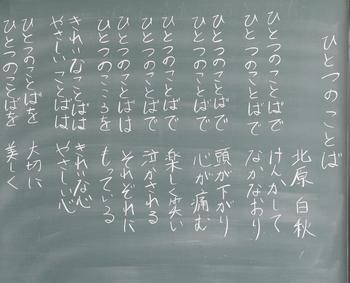 ひとつのことば
北原 白秋
ひとつのことばで けんかして
ひとつのことばで なかなおり
ひとつのことばで 頭が下がり
ひとつのことばで 心が痛む
ひとつのことばで 楽しく笑い
ひとつのことばで 泣かされる
ひとつのことばは それぞれに
ひとつのこころを もっている
きれいなことばは きれいな心
やさしいことばは やさしい心
ひとつのことばを 大切に
ひとつのことばを 美しく